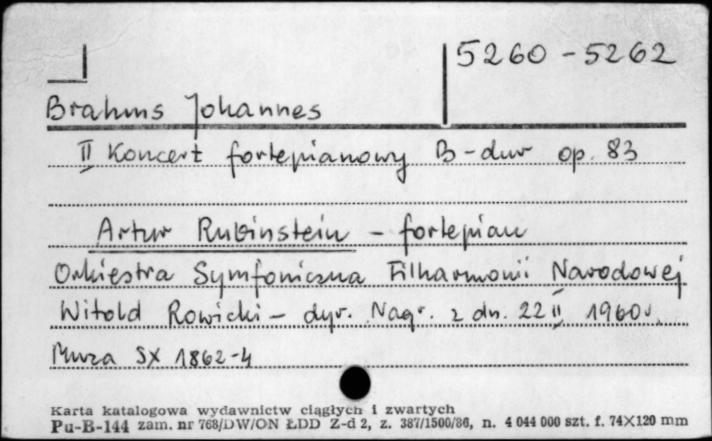 5260-5262
Brahms Johannes
II Koncert fortepianowy B-dur op. 83
Artur Rubinstein - fortepian
Orkiestra Symfoniczna Filharmonii Narodowej
Witold Rowicki - dyr. Nagr. z dn. 22 II 1960 r.
Muza SX 1862-4
Karta katalogowa wydawnictw ciągłych i zwartych
Pu-B-144 zam. nr 768/DW/ON ŁDD Z-d 2, z. 387/1500/86, n. 4 044 000 szt. f. 74X120 mm